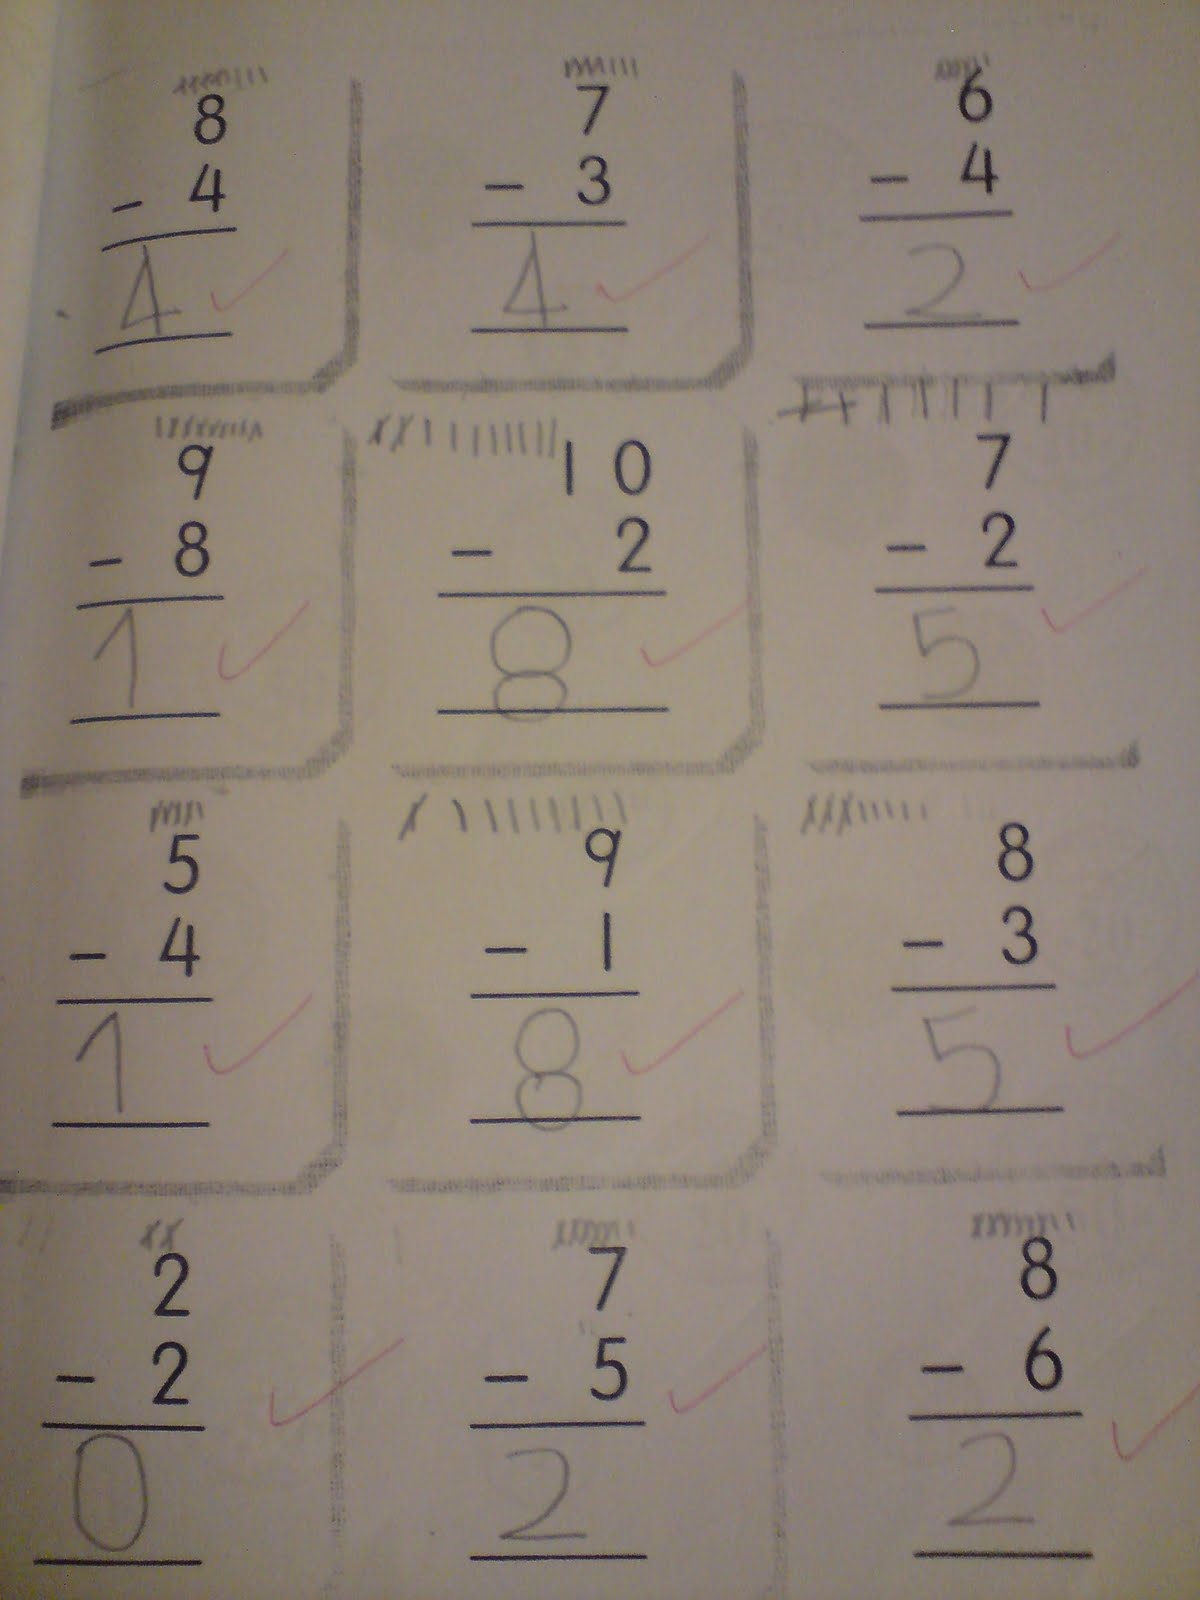 8 7 6
- 4 - 3 - 4
4 4 2
9 10 7
- 8 - 2 - 2
1 8 5
5 9 8
- 4 - 1 - 3
1 8 5
2 7 8
- 2 - 5 - 6
0 2 2